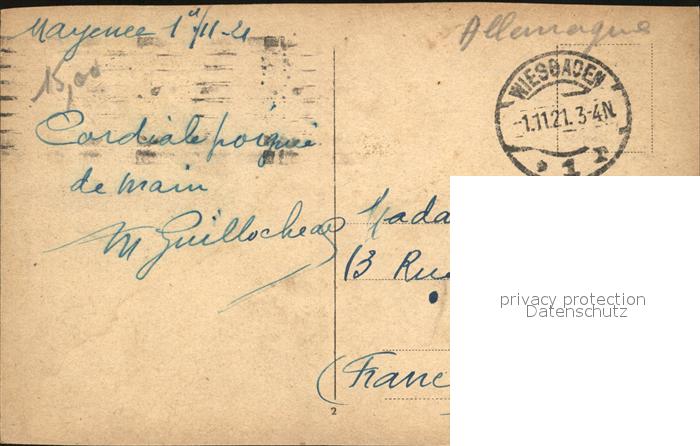 Mayence 1er/11-21
Allemagne
15,00
WIESBADEN
-1.11.21.3-4N.
* 1 r
Cordiale poignée
de main
M Guillocheau
Mada
13 Rue
(Franc
2
privacy protection
Datenschutz